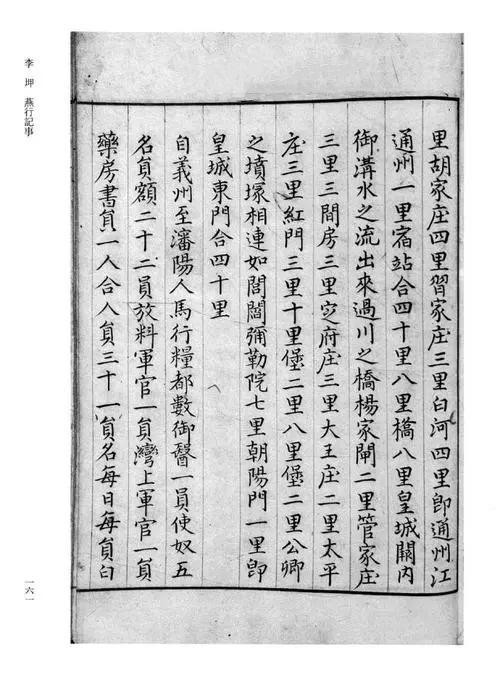 里胡家庄四里習家庄三里白河四里即通州江
通州一里宿站合四十里八里橋八里皇城關內
御溝水之流出來過川之橋楊家閘二里管家庄
三里三間房三里定府庄三里大王庄二里太平
庄三里紅門三里十里堡二里八里堡二里公卿
之墳塚相連如閭闔彌勒院七里朝陽門一里即
皇城東門合四十里
自義州至瀋陽人馬行糧都數御醫一員使奴五
名員額二十二員放料軍官一員灣上軍官一員
藥房書員一人合人員三十一員名每日每員白
李坤 燕行記事
一六一